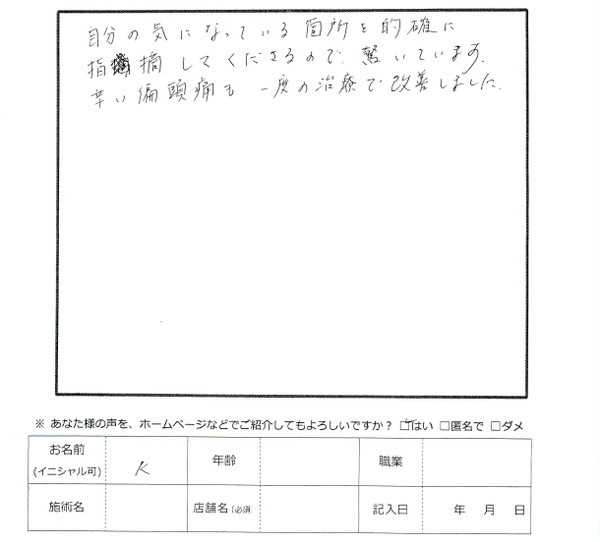 自分の気になっている箇所を的確に
指摘してくださるので、驚いています。
辛い偏頭痛も 一度の治療で改善しました。
※ あなた様の声を、ホームページなどでご紹介してもよろしいですか？ □はい □匿名で □ダメ
お名前
(イニシャル可) K 年齢 職業
施術名 店舗名（必須 記入日 年 月 日